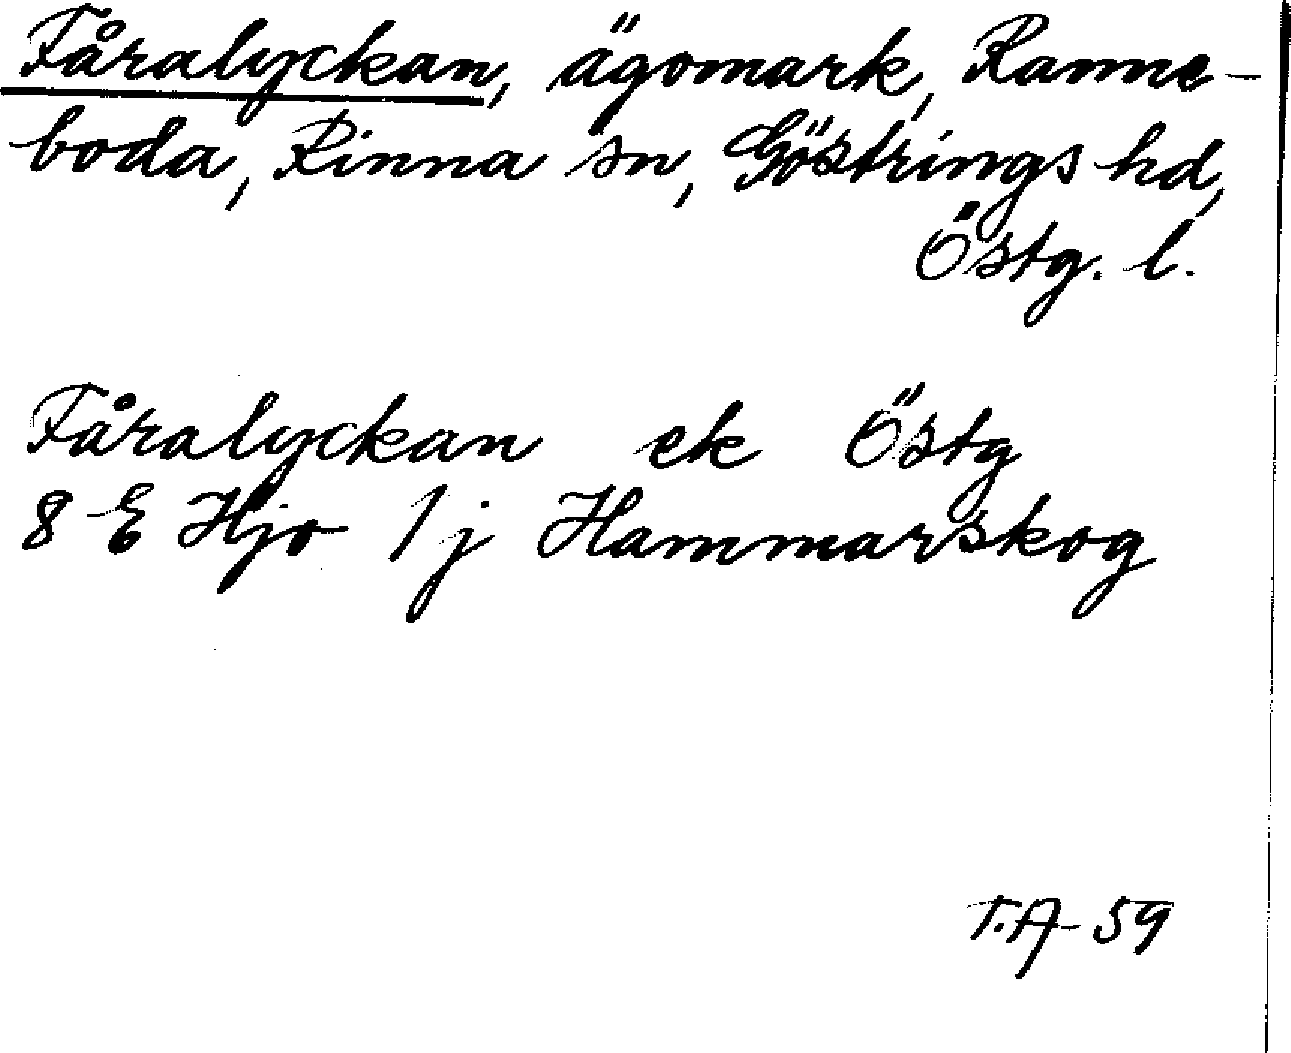 Fåralyckan, ägomark, Ranne-
boda, Rinna sn, Göstrings hd,
Östg. l.
Fåralyckan ek Östg
8 E Hjo 1j Hammarskog
T.A-59